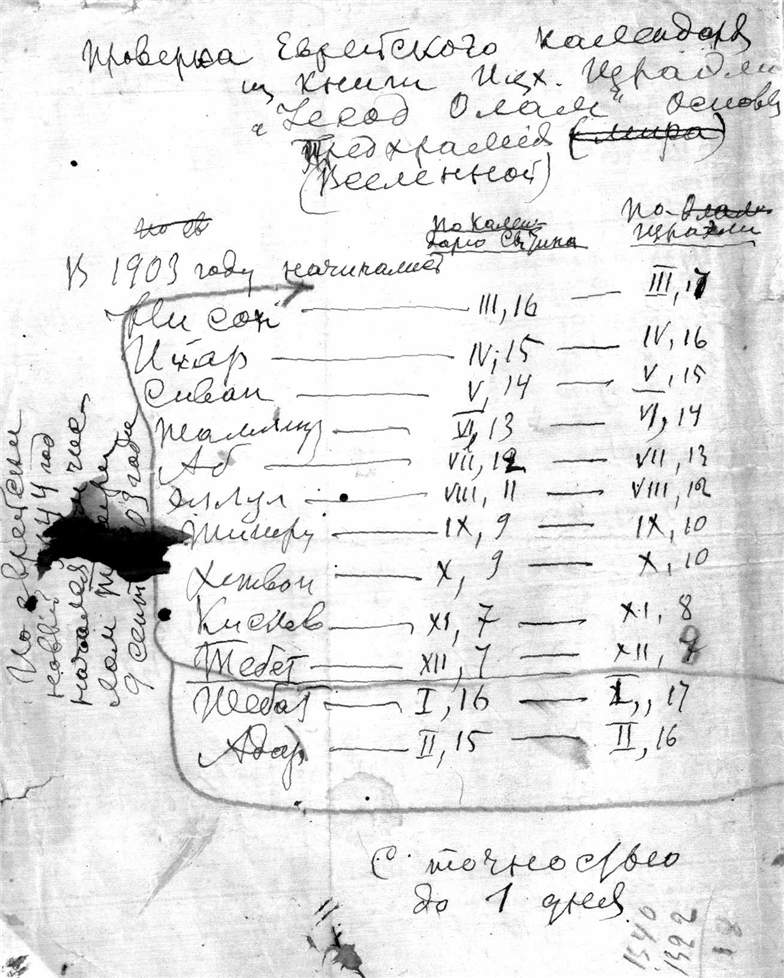 Проверка Еврейского календаря
из книги Ицх. Израэли
"Иесод Олам" Основы
Предхрамия (мира)
(Вселенной)
по ев
по кален-
дарю Сытина
по
Израэли
В 1903 году начинался
Нисон III, 16 — III, 17
Ияар IV, 15 — IV, 16
Сиван V, 14 — V, 15
Таммуз VI, 13 — VI, 14
Аб VII, 12 — VII, 13
Эллул VIII, 11 — VIII, 12
Тишри IX, 9 — IX, 10
Хешван X, 9 — X, 10
Кислев XI, 7 — XI, 8
Тебет XII, 7 — XII,
Шебат I, 16 — I, 17
Адар II, 15 — II, 16
По еврейски
новый 44 год
начался
9 сент 03 года
С точностью
до 1 дня
1340
1322
18